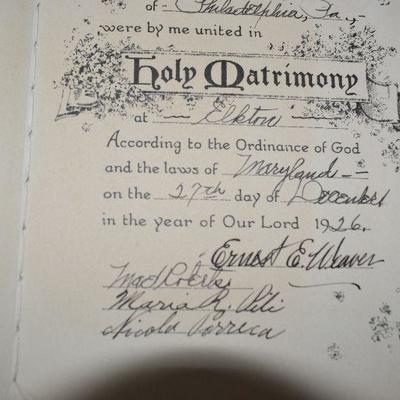 of - Philadelphia, Pa.,
were by me united in
Holy Matrimony
at - Elkton
According to the Ordinance of God
and the laws of Maryland
on the 27th day of December
in the year of Our Lord 1926.
Ernest E. Weaver
Maria R.
Nicola